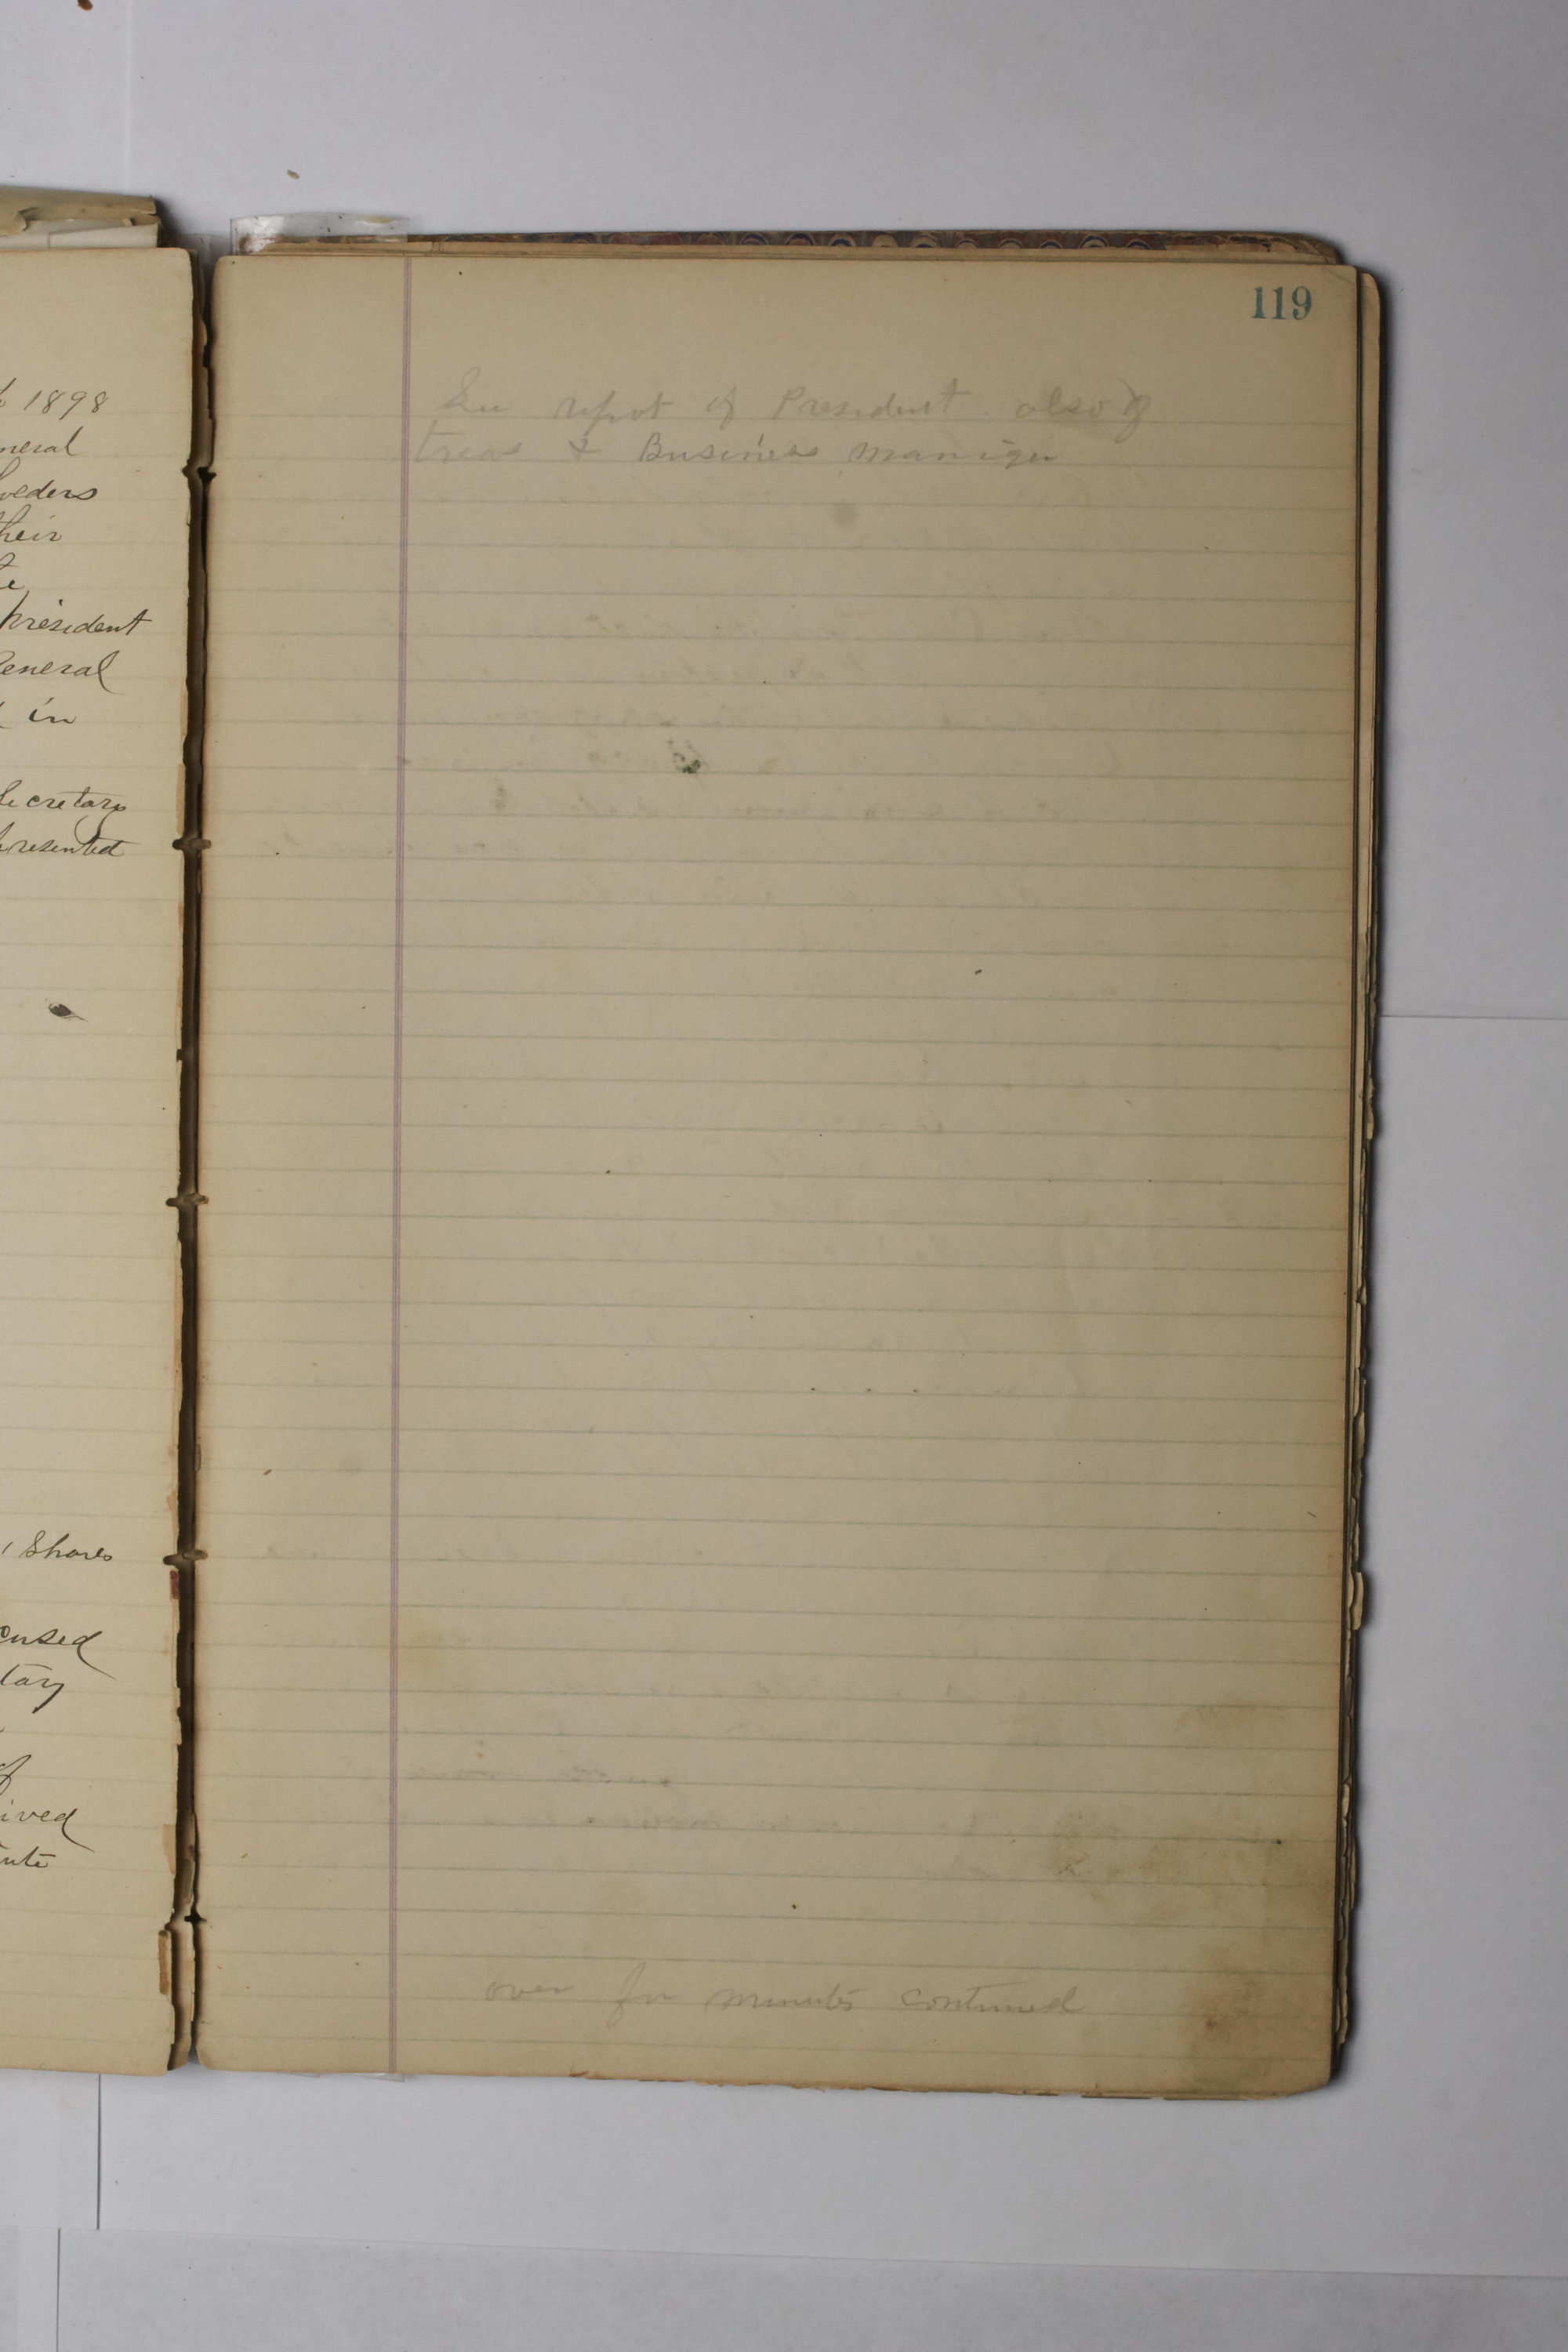 1898
neral
olders
their
te
President
General
in
Secretary
presented
Shares
cused
tary
of
ived
ute
119
See report of President also of
treas & Business Maniger
over for minutes continued